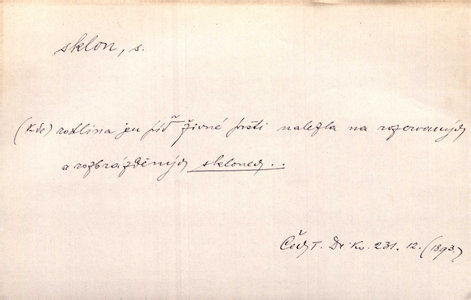 sklon, s.
(Kde) rostlina jen píď živné prsti nalezla na rozervaných
a rozbrázděných sklonech..
Čech T. Dr. Kv. 231. 12. (1893)